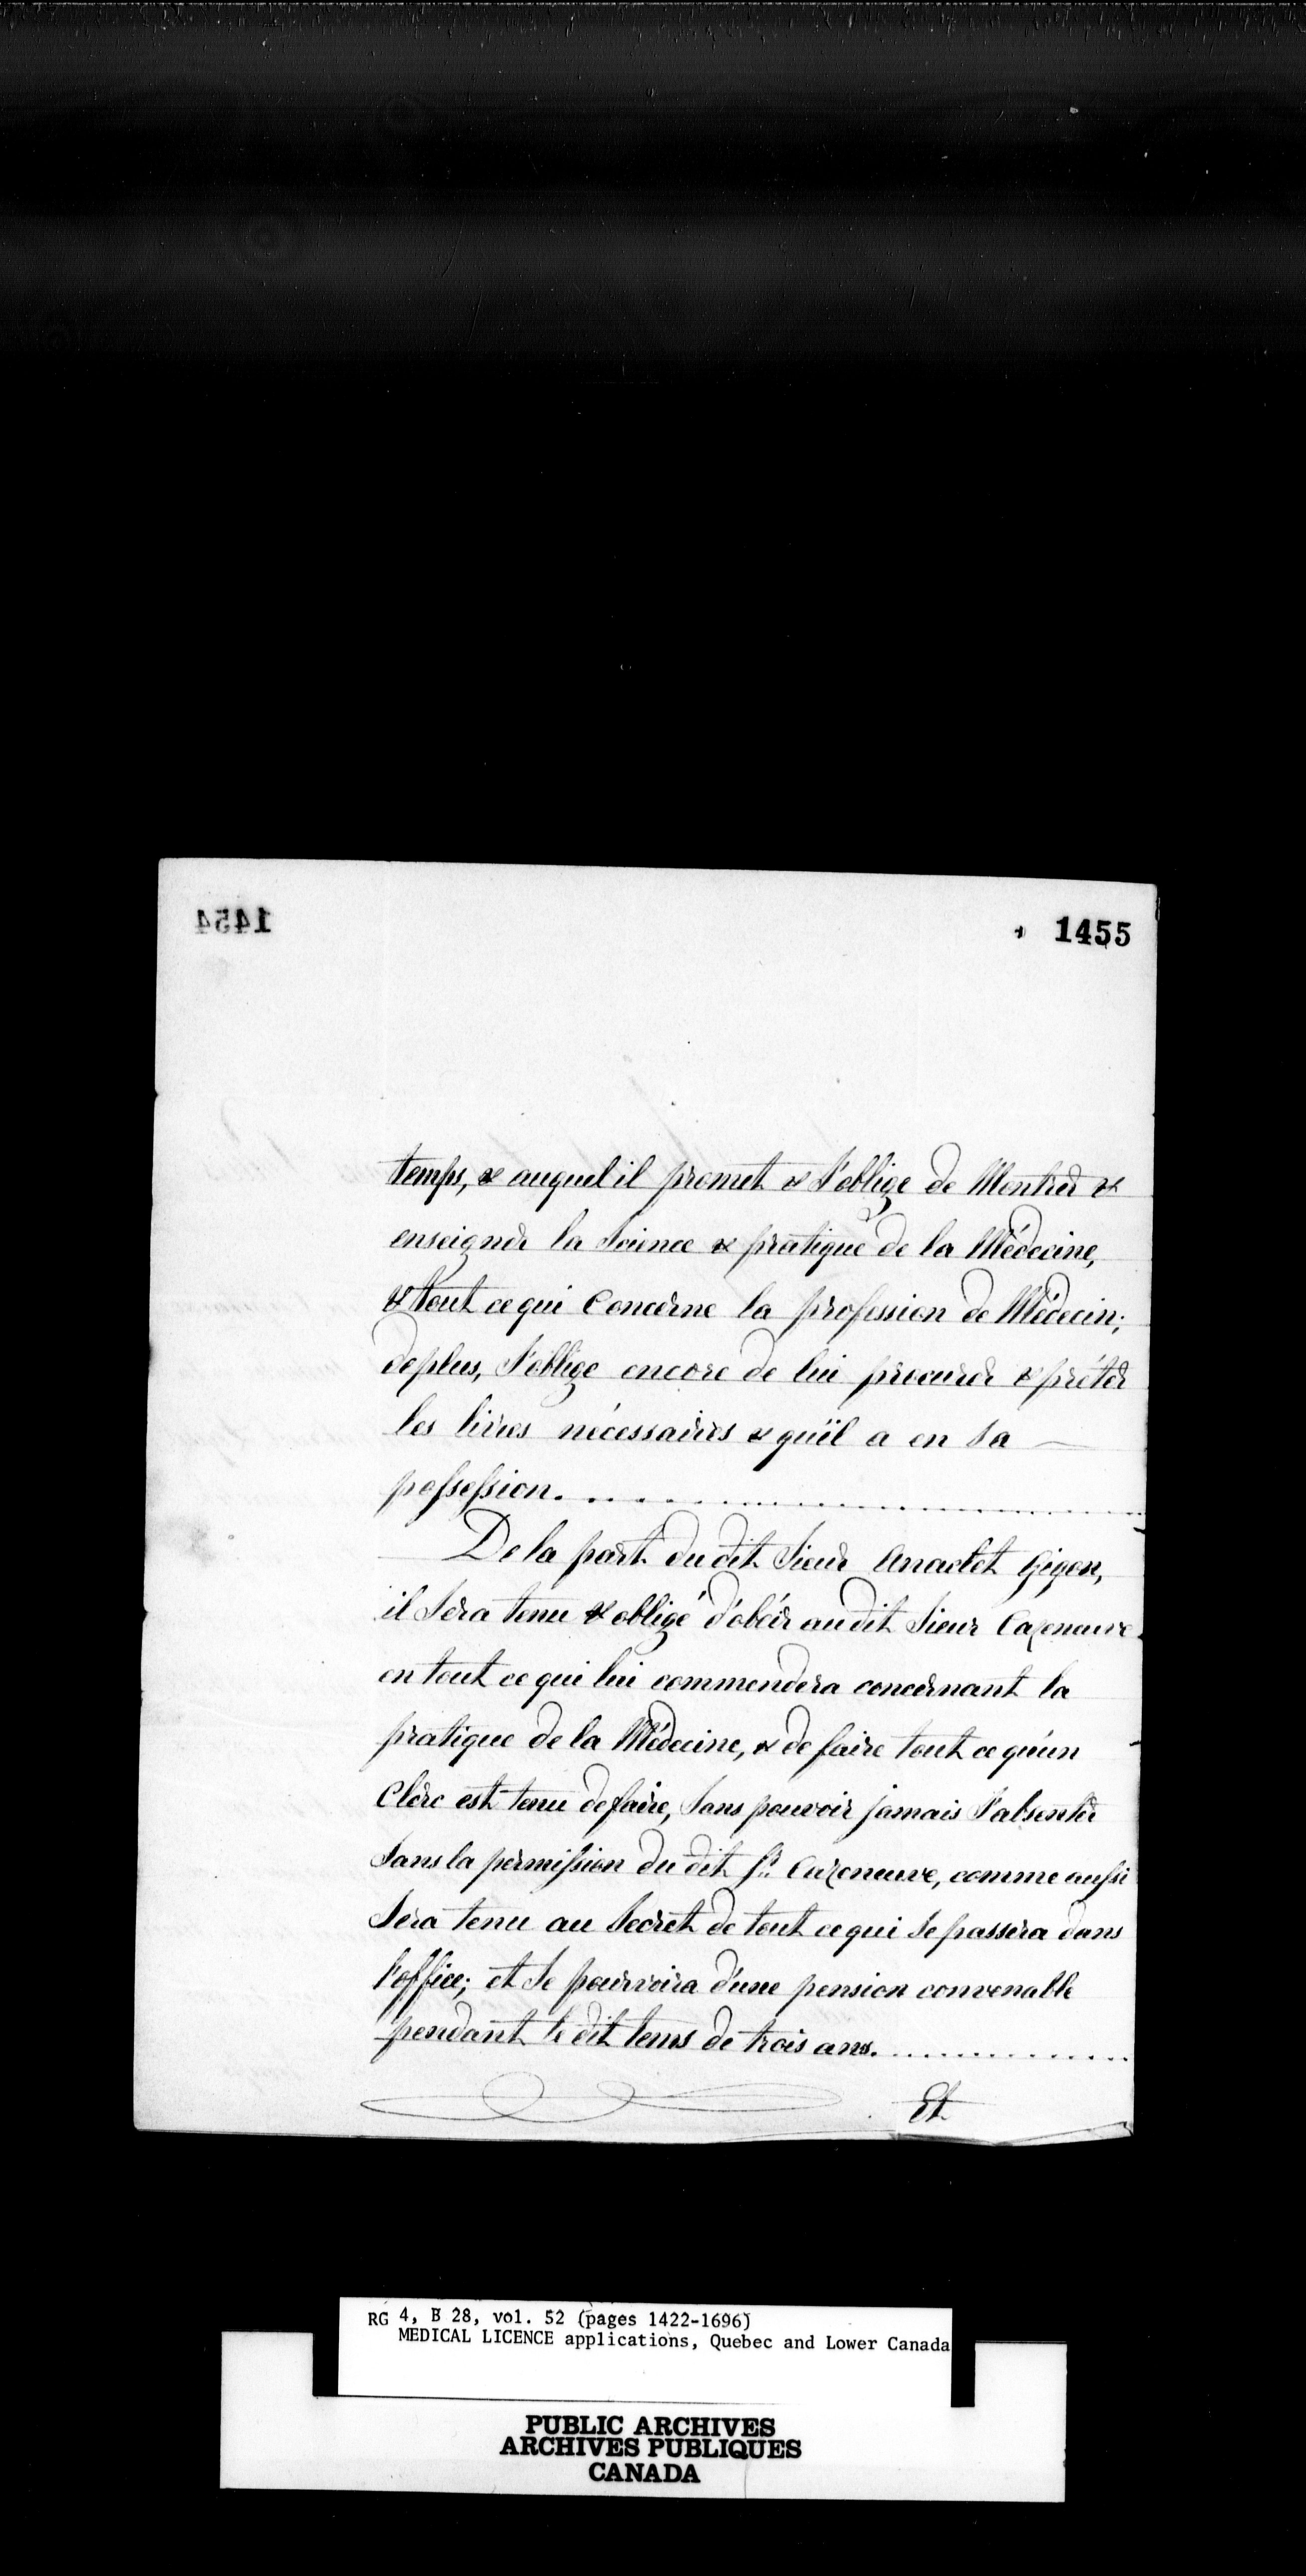 1454
1455
temps, & auquel il promet & s'oblige de Montrer &
enseigner la Science & pratique de la Médecine,
& tout ce qui Concerne la profession de Médecin;
de plus, s'oblige encore de lui procurer & préter
les livres nécessaires & qu'il a en sa
possession.
De la part du dit Sieur Anaclet Gigon,
il Sera tenu & obligé d'obéir au dit Sieur Cazeneuve
en tout ce qui lui commendera concernant la
pratique de la Médecine, & de faire tout ce qu'un
Clerc est tenu de faire, Sans pouvoir jamais s'absenter
Sans la permission du dit Sr. Cazeneuve, comme aussi
Sera tenu au Secret de tout ce qui se passera dans
l'office; et se pourvoira d'une pension convenable
pendant le dit tems de trois ans.
Et
RG 4, B 28, vol. 52 (pages 1422-1696)
MEDICAL LICENCE applications, Quebec and Lower Canada
PUBLIC ARCHIVES
ARCHIVES PUBLIQUES
CANADA